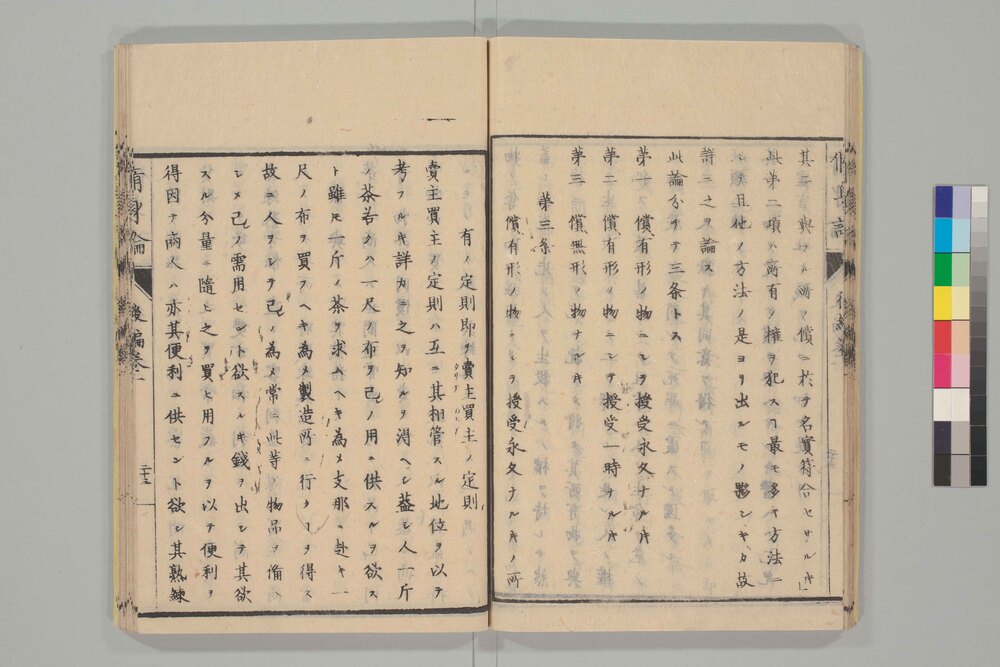 其三 與フル所ノ償ニ於テ名實符合セサルキ
此第二項ハ商有ノ權ヲ犯スノ最モ多キ方法ニ
シテ且他ノ方法ノ是ヨリ出ルモノ夥シキカ故
許ニ之ヲ論ス
此論分チテ三条トス
第一 償有形ノ物ニシテ授受永久ナルキ
第二 償有形ノ物ニシテ授受一時ナルキ
第三 償無形ノ物ナルキ
第三条
償有形ノ物ニシテ授受永久ナルキノ所
有ノ定則即チ賣主買主ノ定則
賣主買主ノ定則ハ互ニ其相管スル地位ヲ以テ
考フルキ詳カニ之ヲ知ルヲ得ヘシ蓋シ人一斤
ノ茶若クハ一尺ノ布ヲ己ノ用ニ供スルヲ欲ス
ト雖モ一斤ノ茶ヲ求ムヘキ為メ支那ニ赴キ一
尺ノ布ヲ買フヘキ為メ製造所ニ行クヿヲ得ス
故ニ人ヲシテ己ノ為メ常ニ此等ノ物品ヲ備西
シメ己ノ需用セント欲スルキ錢ヲ出シテ其欲
スル分量ニ隨ヒ之ヲ買ヒ用フルヲ以テ便利ヲ
得因テ商人ハ亦其便利ニ供セント欲シ其熟練
脩身論 後編巻二
三十三